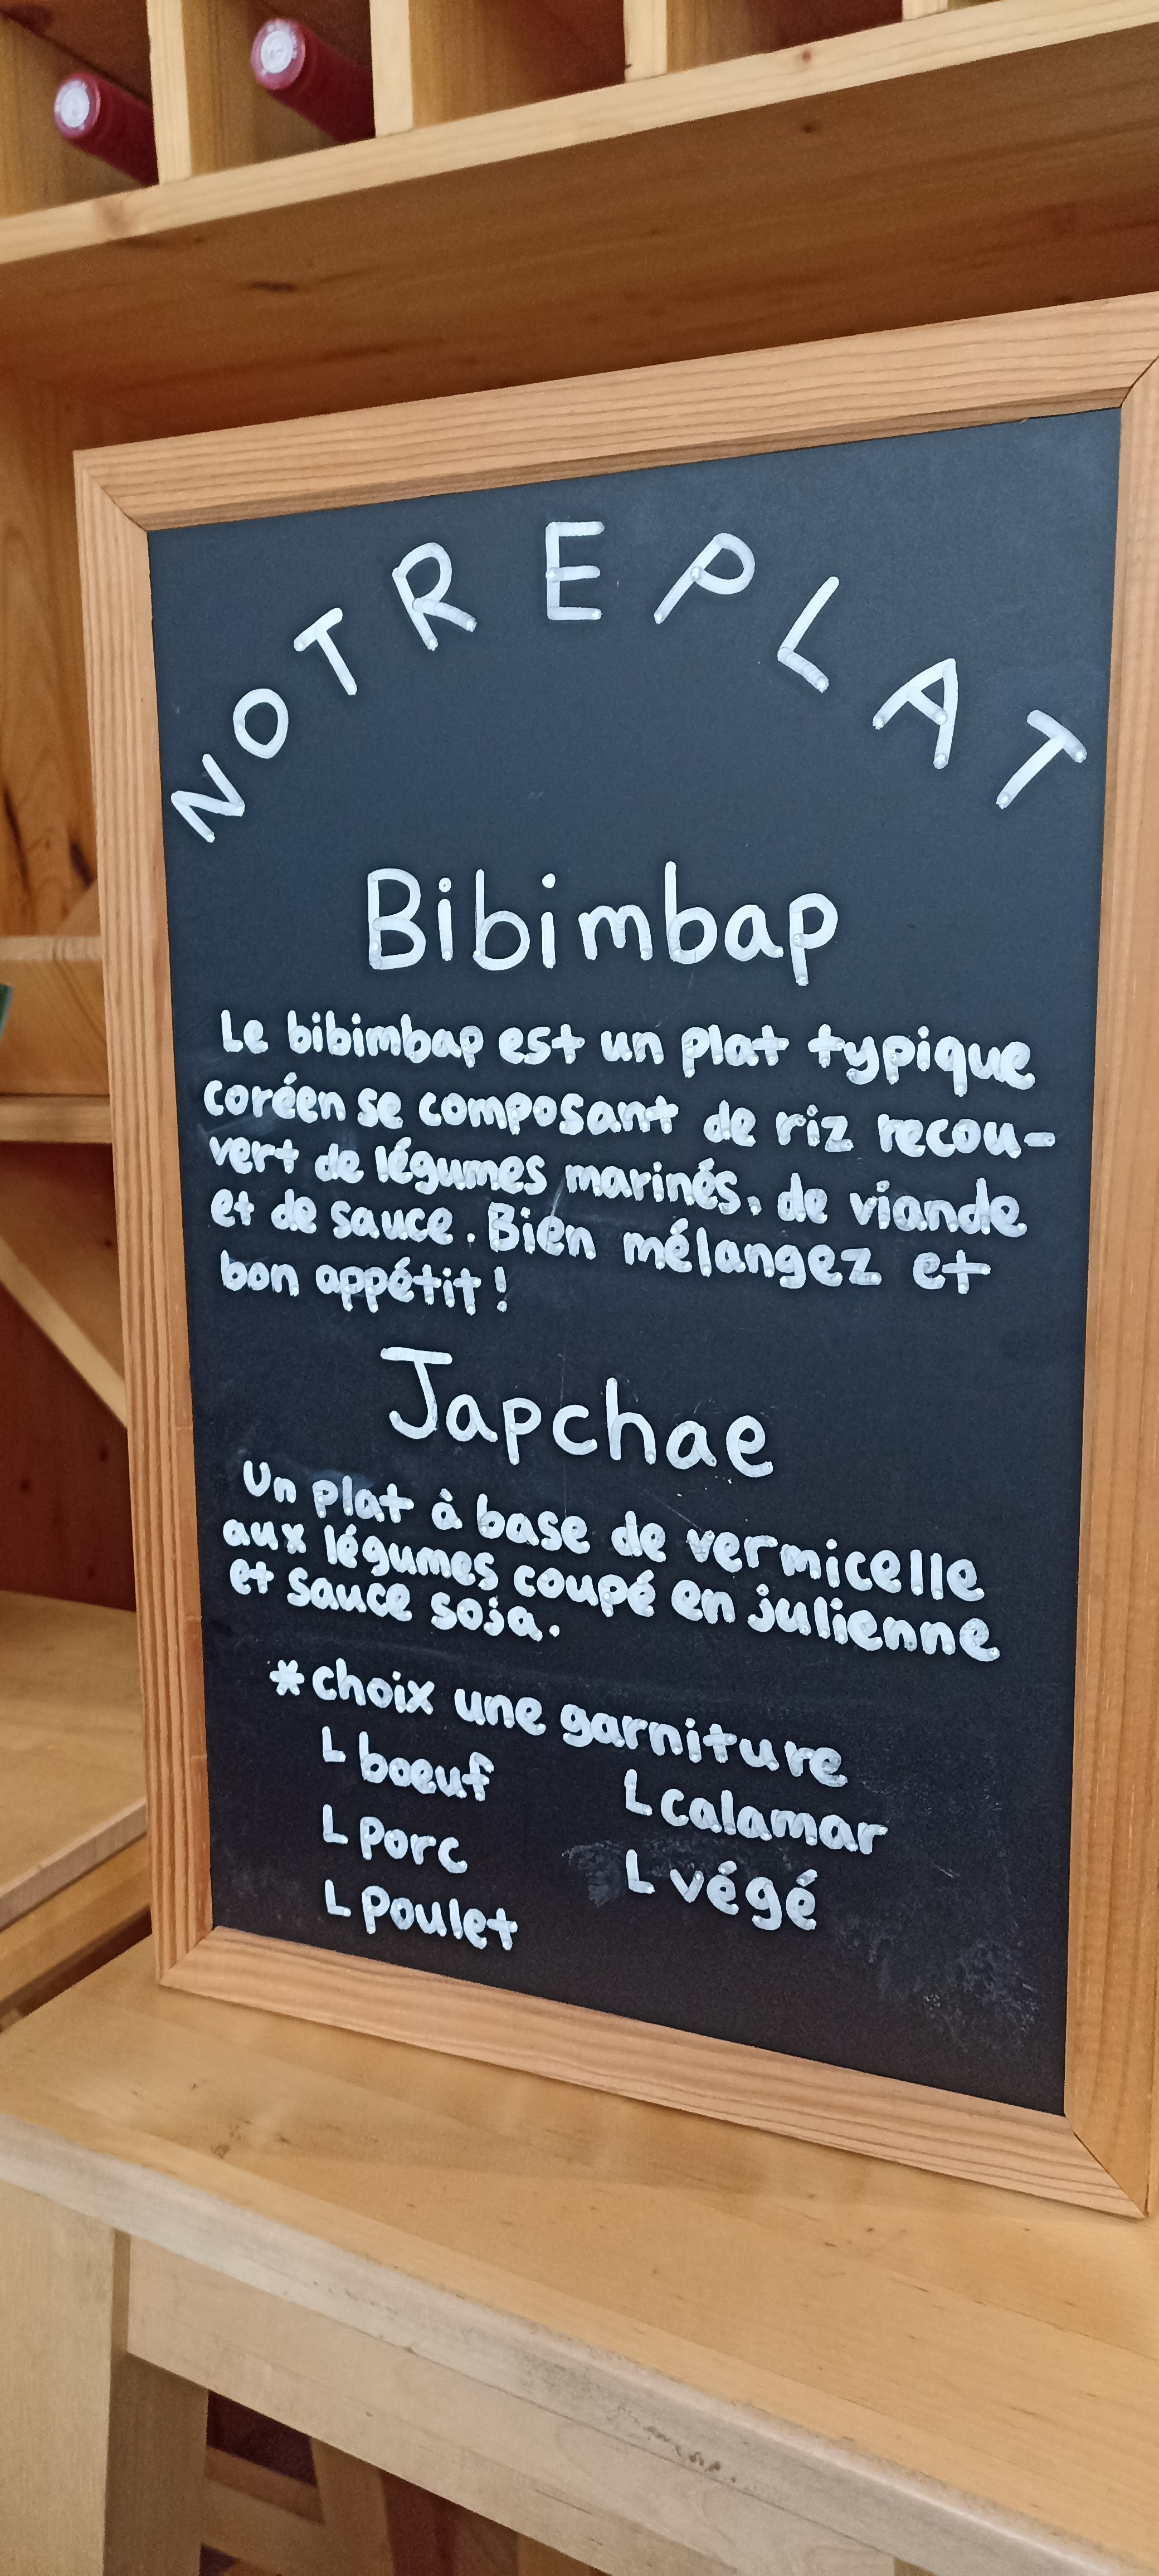 NOTRE PLAT
Bibimbap
Le bibimbap est un plat typique
coréen se composant de riz recou-
vert de légumes marinés, de viande
et de sauce. Bien mélangez et
bon appétit!
Japchae
Un plat à base de vermicelle
aux légumes coupé en julienne
et sauce soja.
*choix une garniture
L boeuf
L porc
L poulet
L calamar
L végé